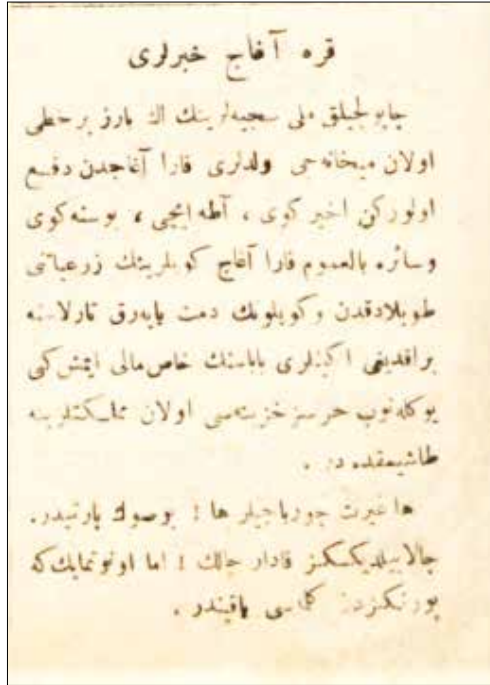 قره آغاج خبرلری
چاپولجیلق ملی سجیه‌لرینك اك بارز بر خطی
اولان میخانه‌جی ولدلری قارا آغاجدن دفع
اولورکن اخیر کوی ، آطه ایچی ، بوسنه کوی
وسائره بالعموم قارا آغاج کویلرینك زرعیاتنی
طوپلادقدن و کویلونك دمت یاپه‌رق تارلاسنه
براقدیغی اکینلری باباسنك خاص مالی ایمش کبی
یوکله‌نوب خرسز خزینه‌سی اولان مملکتلرینه
طاشیمقده در .
ها غیرت چورباجیلر ها ! بو صوك پارتیدر .
چالابیلدیککز قادار چالك ! اما اونوتمایك که
بورنکزدن کلمه‌سی یاقیندر .